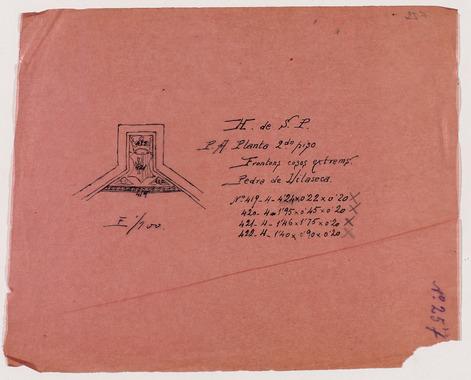 257
H. de S. P.
P. A Planta 2do piso
Frontons cosos extrems.
Pedra de Vilaseca.
Nº 419-H-4'24x0'22x0'20 X
420-H-1'95x0'45x0'20 X
421-H-1'46x1'75x0'20 X
422-H-1'40x1'90x0'20 X
422
421
419
E 1/100.
Nº 257